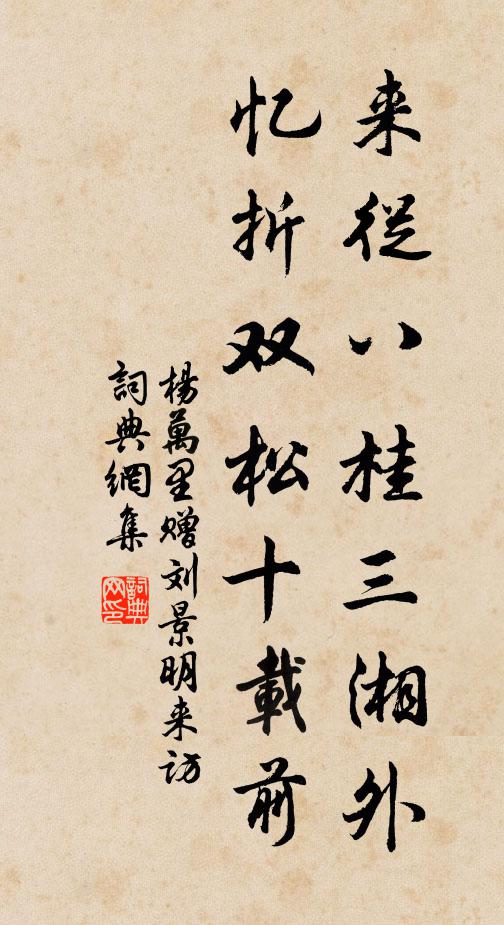 来從八桂三湘外
忆折双松十載前
楊萬里赠刘景明来访
詞典網集
詞典网印